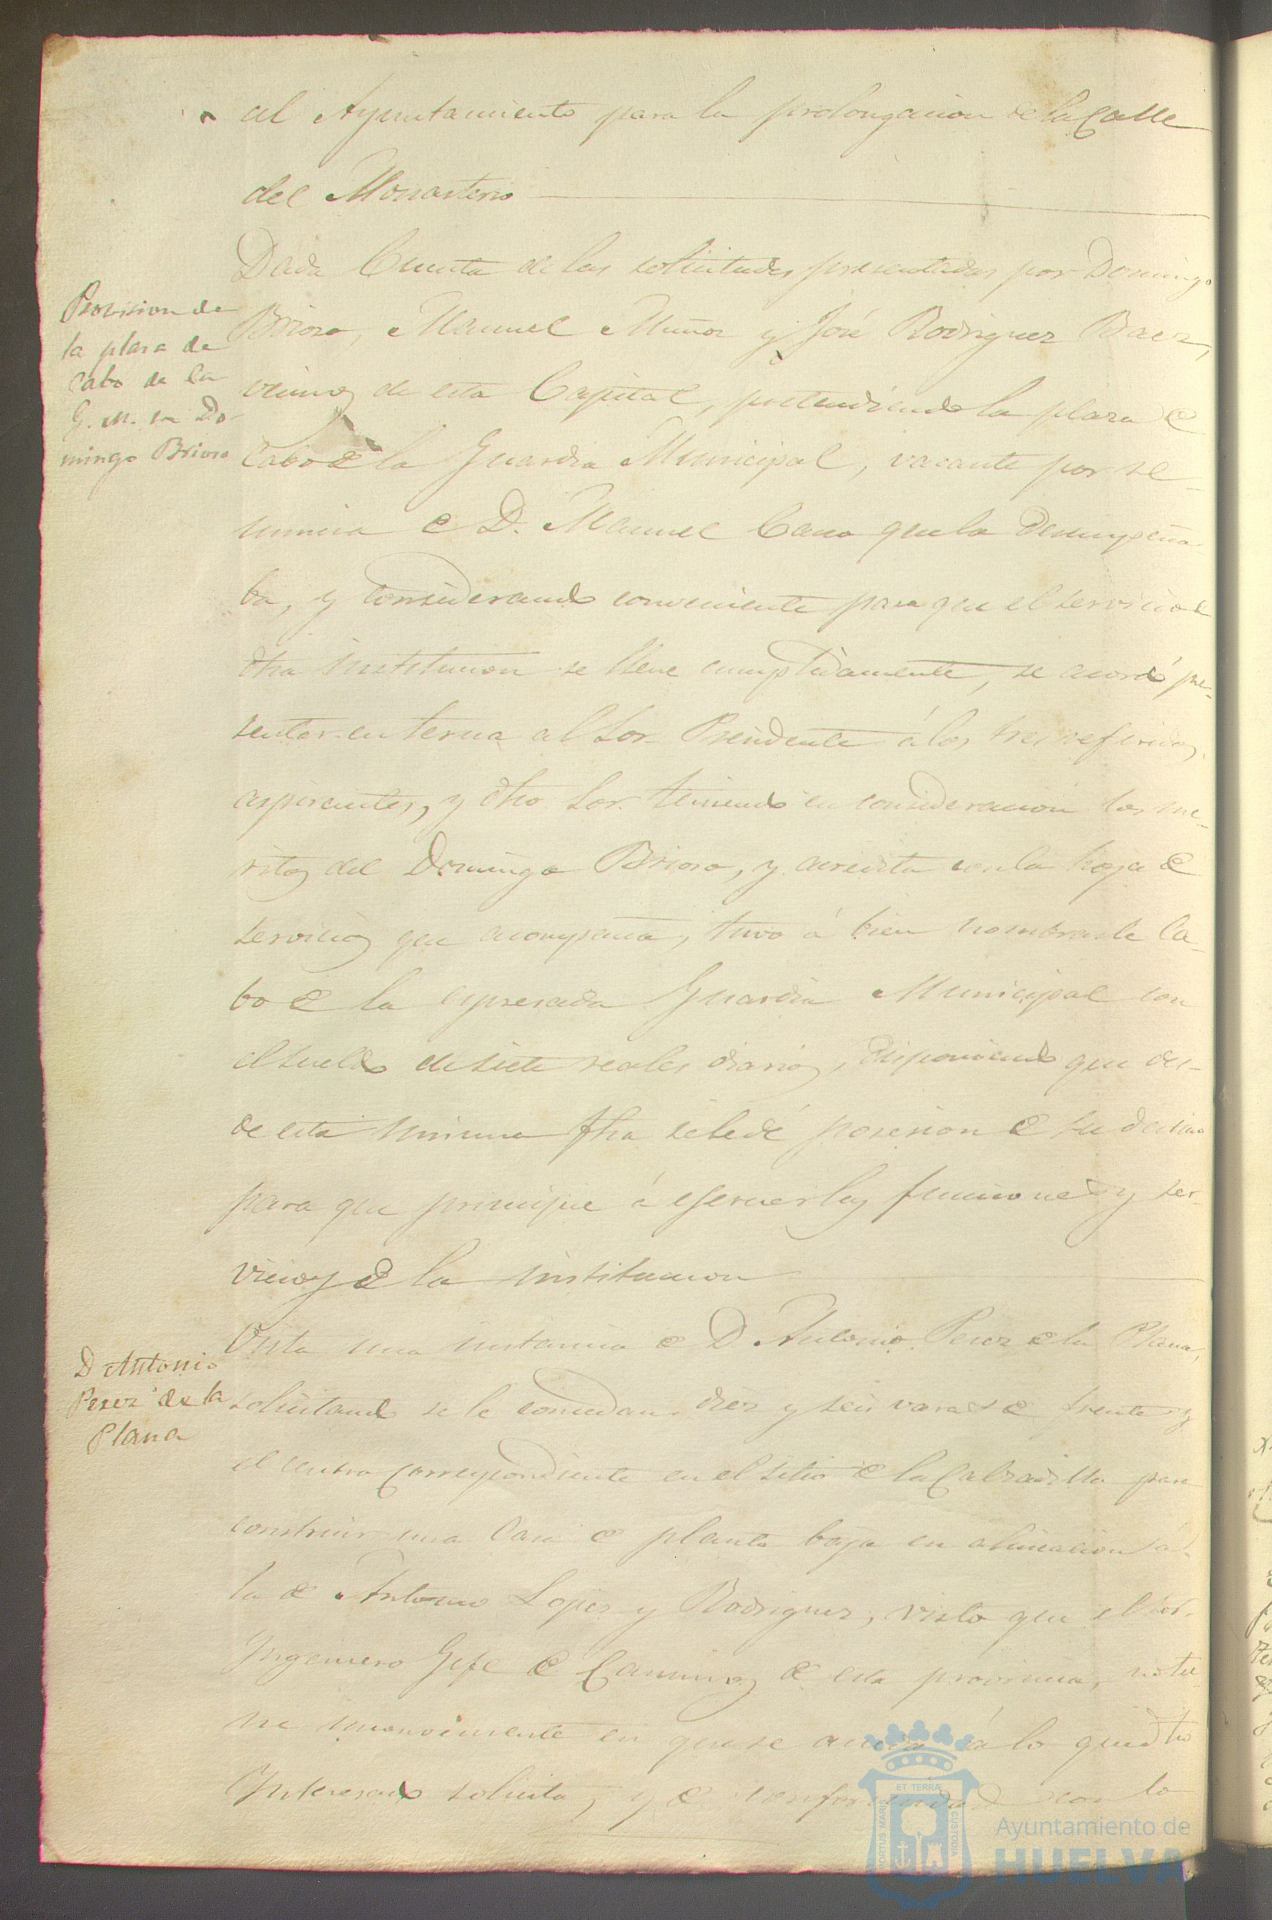 al Ayuntamiento para la prolongacion de la Calle
del Monasterio
Provision de
la plasa de
Cabo de la
G. M. en Do-
mingo Brioso
Dada Cuenta de las solicitudes presentadas por Domingo
Brioso, Manuel Muñoz y José Rodriguez Baez,
vecinos de esta Capital, pretendiendo la plaza de
Cabo de la Guardia Municipal, vacante por re-
nuncia de D. Manuel Cano que la desempeña
ba, y considerando conveniente para que el servicio de
dha institucion se llene cumplidamente, se acordó pre-
sentar en terna al Sor. Presidente á los tres referidos
aspirantes, y dho Sor. teniendo en consideracion los me-
ritos del Domingo Brioso, y acredita con la hoja de
servicios que acompaña, tuvo á bien nombrarle Ca-
bo de la espresada Guardia Municipal con
el sueldo de siete reales diarios, disponiendo que des-
de esta misma fha se le dé posesion de su destino
para que principie á egercer las funciones y ser-
vicios de la institucion
D Antonio
Perez de la
Plana
Vista una instancia de D. Antonio Perez de la Plana,
solicitando se le concedan diez y seis varas de frente y
el centro correspondiente en el sitio de la Calzadilla para
construir una Casa de planta baja en alineacion á
la de Antonio Lopez y Rodriguez, visto que el Sor.
Ingeniero Gefe de Caminos de esta provincia, no tie-
ne inconveniente en que se acceda á lo que dho
Interesado solicita, y de conformidad con lo
ET TERRÆ
PORTUS MARIS
CUSTODIA
Ayuntamiento de
HUELVA